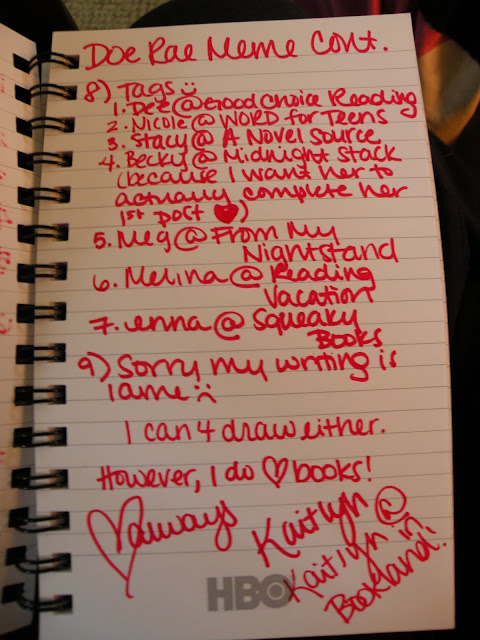 Doe Rae Meme Cont.
8) Tags :)
1. Dez @ Good Choice Reading
2. Nicole @ WORD for Teens
3. Stacy @ A Novel Source
4. Becky @ Midnight Stack
(because I want her to
actually complete her
1st post ♥)
5. Meg @ From My
Nightstand
6. Melina @ Reading
Vacation
7. enna @ Squeaky
Books
9) Sorry my writing is
lame :(
I can 4 draw either.
However, I do ♡ books!
♡ always
Kaitlyn @
Kaitlyn in
Bookland!
HBO